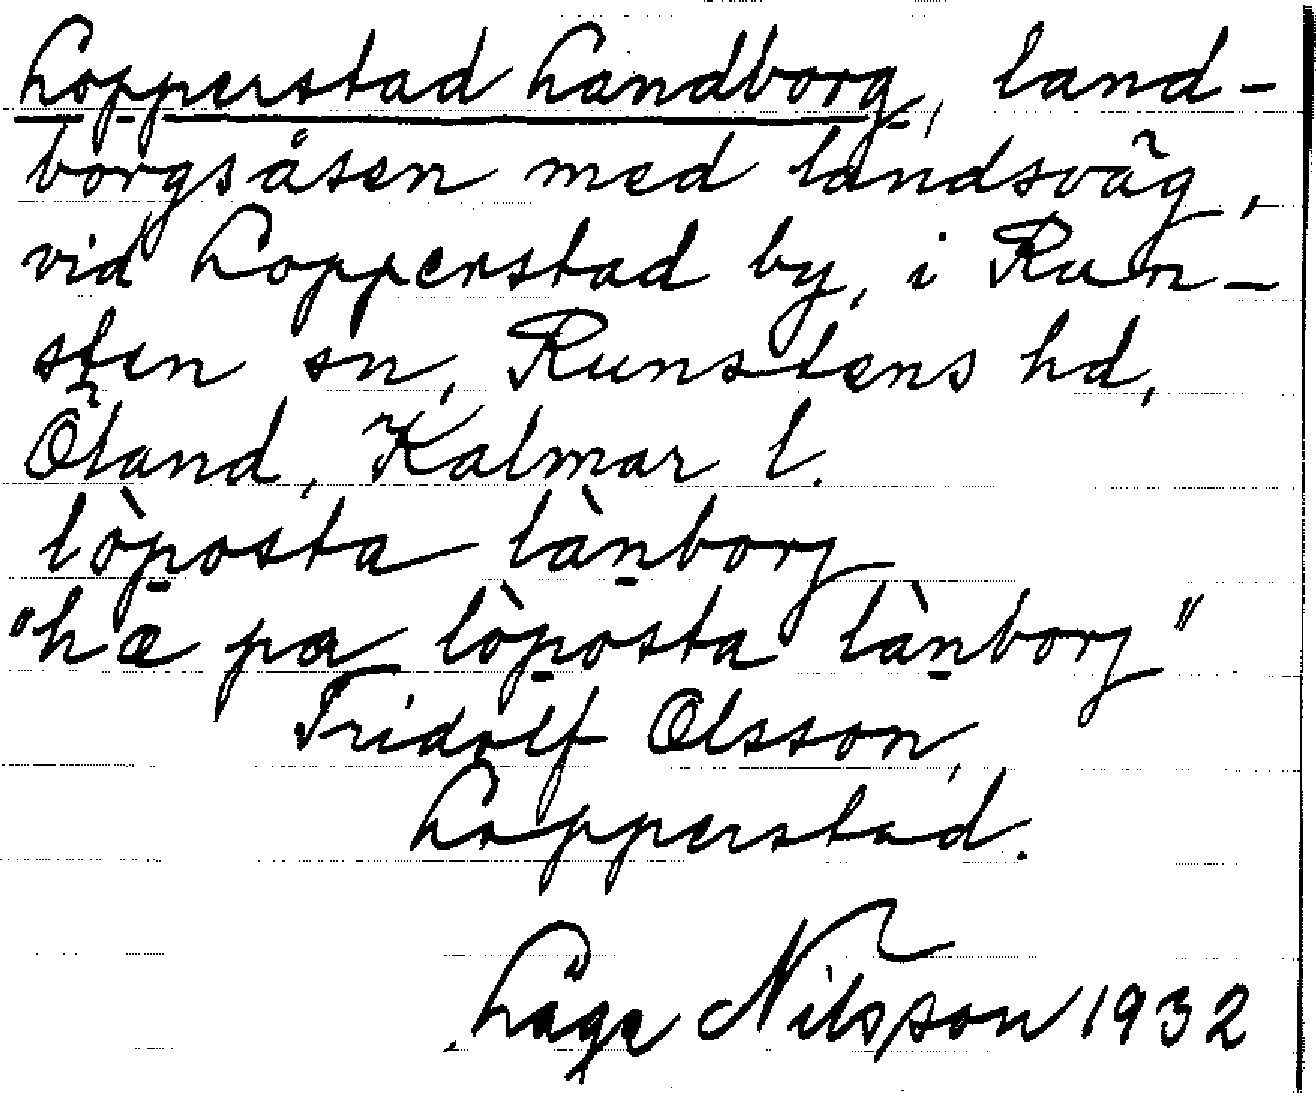 Lopperstad Landborg, land-
borgsåsen med landsväg,
vid Lopperstad by, i Run-
sten sn, Runstens hd,
Öland, Kalmar l.
lòp̱osta làṉborg
"hæ pa lòp̱osta làṉborg"
Fridolf Olsson,
Lopperstad.
Låge Nilsson 1932